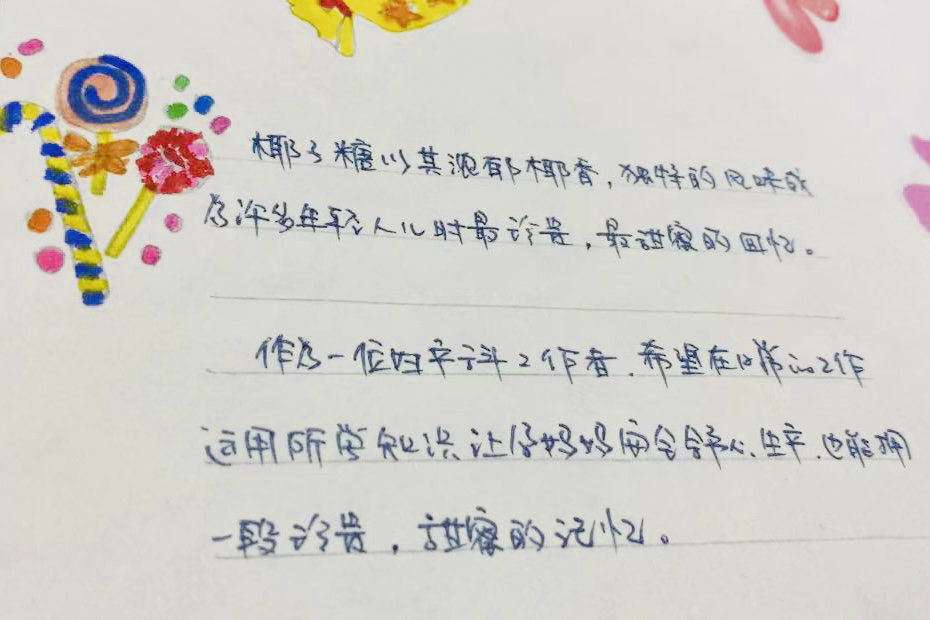 椰子糖以其浓郁椰香,独特的风味成
为许多年轻人儿时最珍贵,最甜蜜的回忆。
作为一位妇产科工作者,希望在日常的工作
运用所学知识让孕妈妈安全舒心生产,也能拥
一段珍贵,甜蜜的记忆。